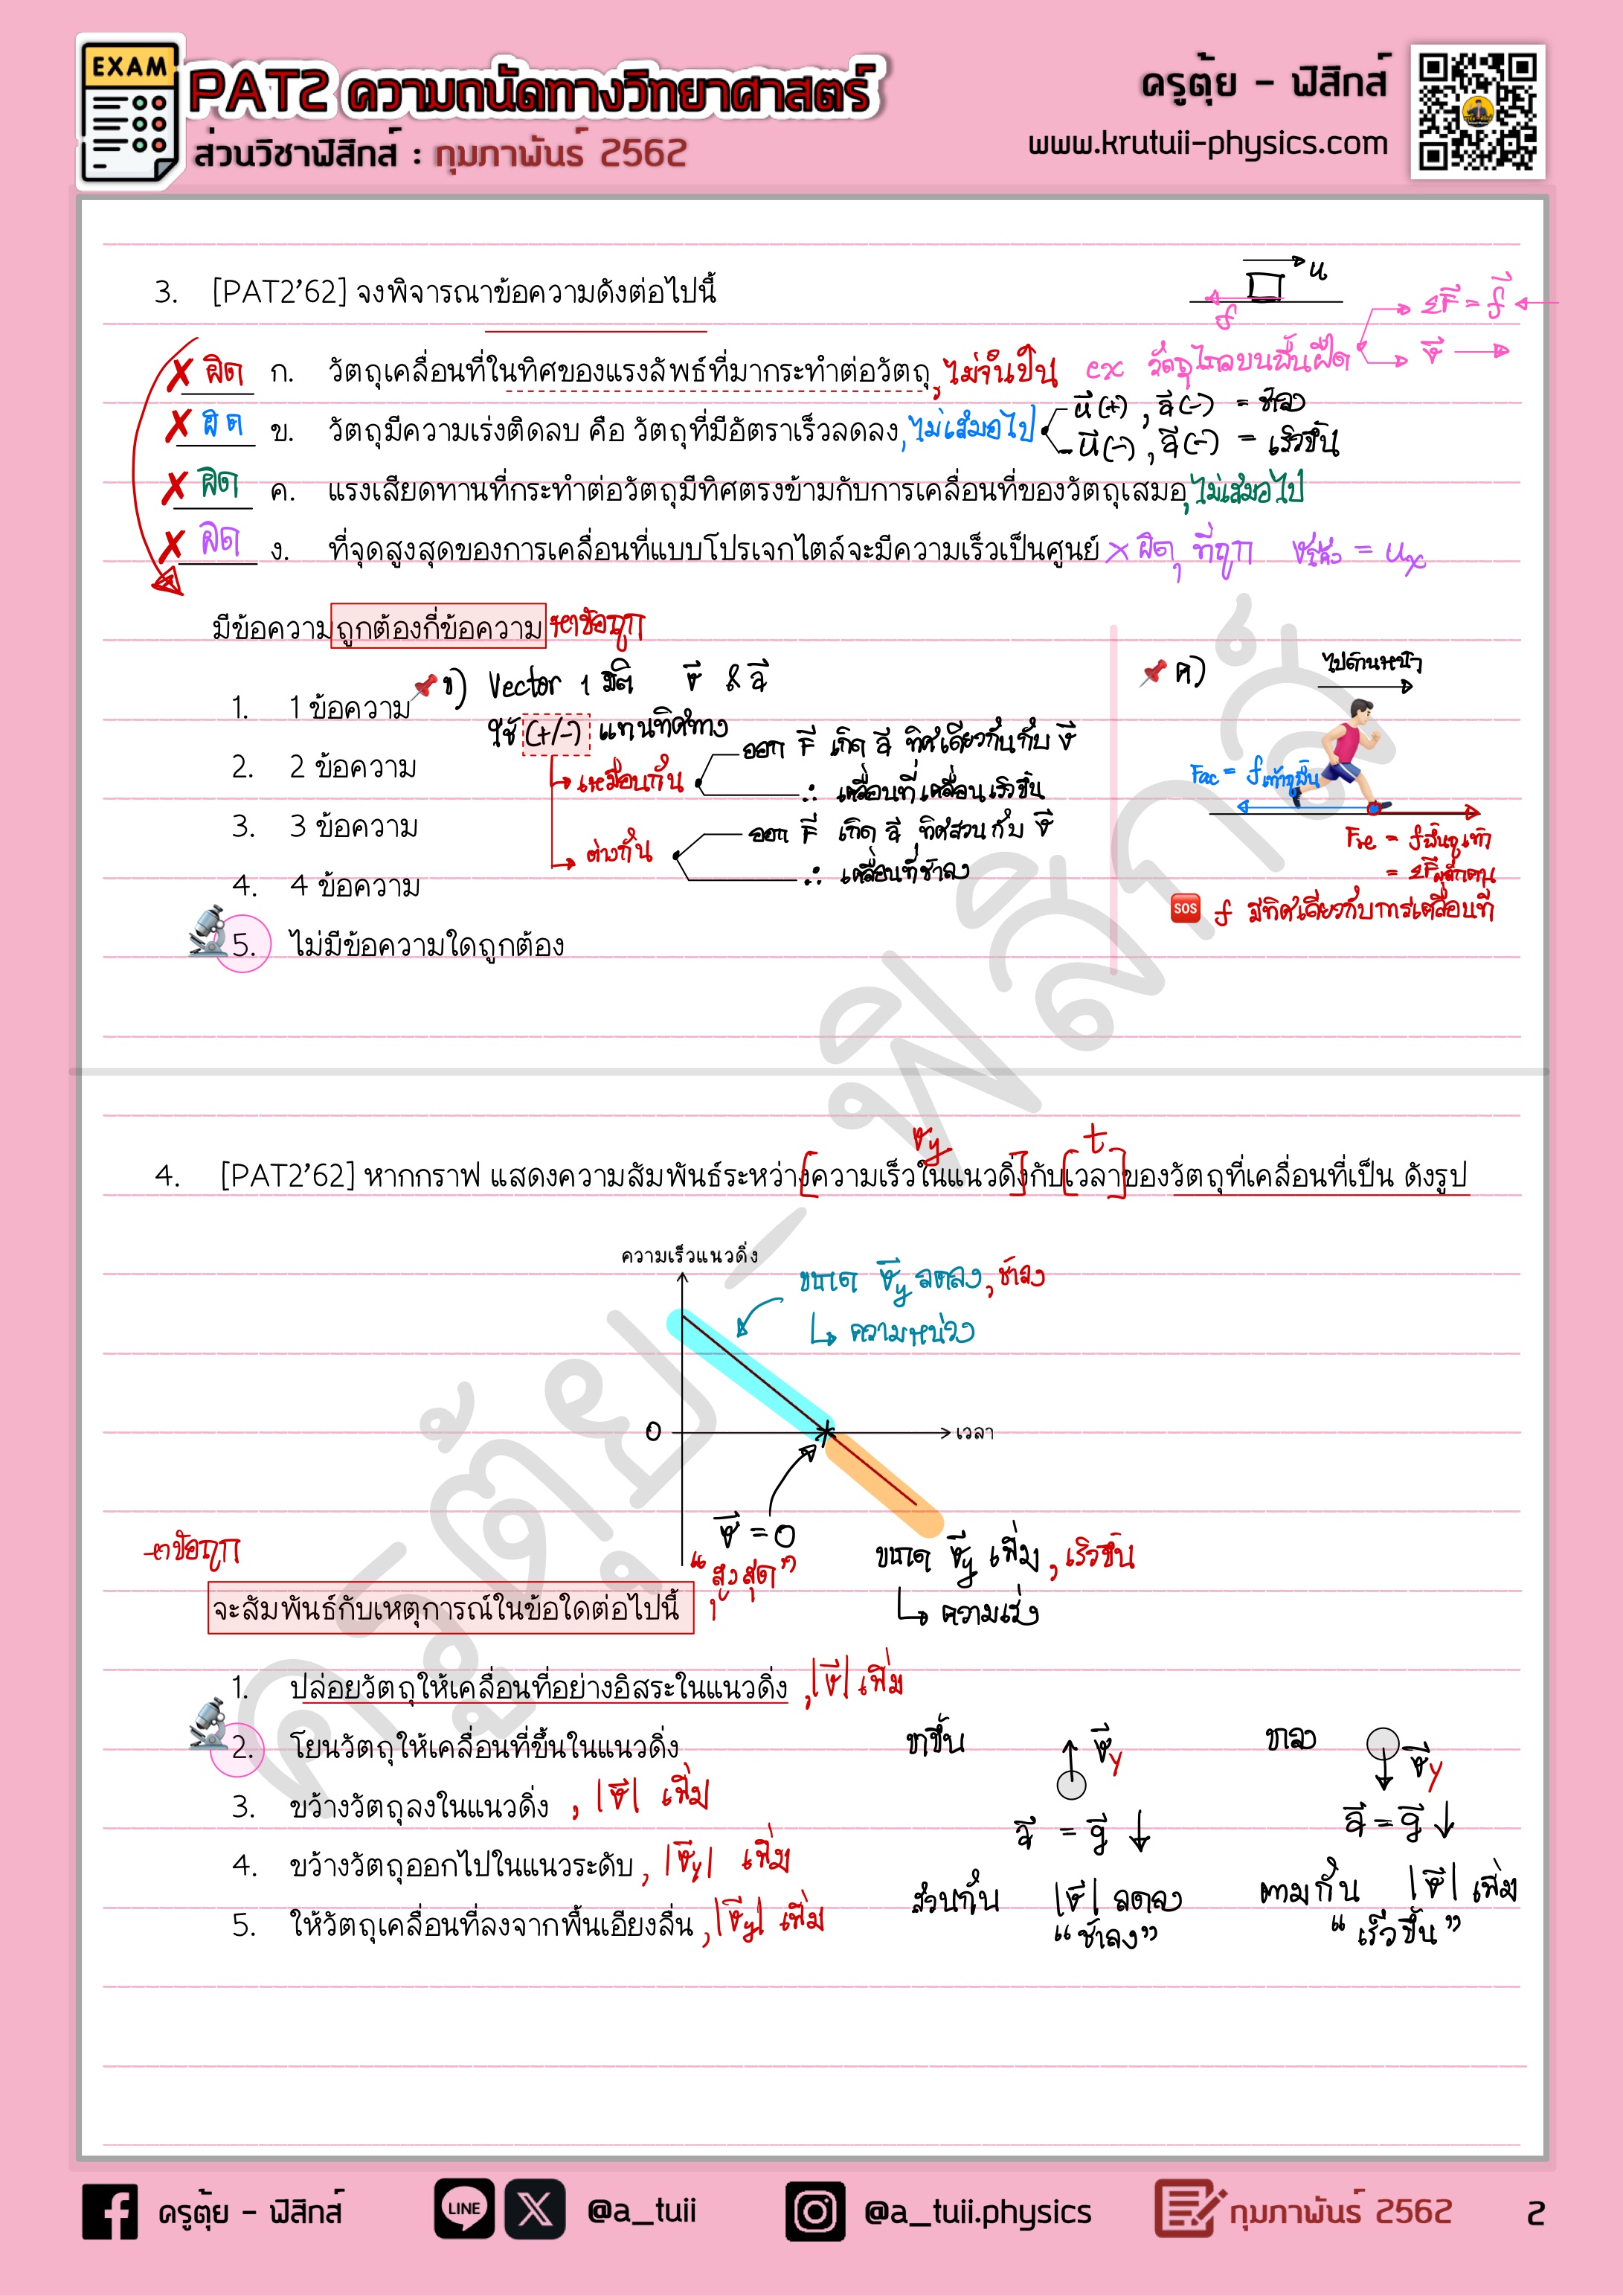 EXAM
PAT2 ความถนัดทางวิทยาศาสตร์
ส่วนวิชาฟิสิกส์ : กุมภาพันธ์ 2562
ครูตุ้ย - ฟิสิกส์
www.krutuii-physics.com
3. [PAT2'62] จงพิจารณาข้อความดังต่อไปนี้
u
f
ΣF = f
v
✗ ผิด ก. วัตถุเคลื่อนที่ในทิศของแรงลัพธ์ที่มากระทำต่อวัตถุ, ไม่จำเป็น ex วัตถุไถลบนพื้นฝืด
✗ ผิด ข. วัตถุมีความเร่งติดลบ คือ วัตถุที่มีอัตราเร็วลดลง, ไม่เสมอไป
u(+), a(-) = ช้าลง
u(-), a(-) = เร็วขึ้น
✗ ผิด ค. แรงเสียดทานที่กระทำต่อวัตถุมีทิศตรงข้ามกับการเคลื่อนที่ของวัตถุเสมอ, ไม่เสมอไป
✗ ผิด ง. ที่จุดสูงสุดของการเคลื่อนที่แบบโปรเจกไตล์จะมีความเร็วเป็นศูนย์ × ผิด, ที่ถูก = ux
มีข้อความถูกต้องกี่ข้อความ หาข้อถูก
1. 1 ข้อความ
2. 2 ข้อความ
3. 3 ข้อความ
4. 4 ข้อความ
5. ไม่มีข้อความใดถูกต้อง
ข) Vector 1 มิติ v & a
ใช้ (+/-) แทนทิศทาง
เหมือนกัน
ออก F เกิด a ทิศเดียวกันกับ v
∴ เคลื่อนที่เคลื่อนเร็วขึ้น
ต่างกัน
ออก F เกิด a ทิศสวนกับ v
∴ เคลื่อนที่ช้าลง
ค) ไปด้านหน้า
Fac = fเท้าถูพื้น
Fre = fพื้นถูเท้า
= ΣFผลักคน
SOS f มีทิศเดียวกับการเคลื่อนที่
vy
t
4. [PAT2'62] หากกราฟ แสดงความสัมพันธ์ระหว่างความเร็วในแนวดิ่งกับเวลาของวัตถุที่เคลื่อนที่เป็น ดังรูป
ความเร็วแนวดิ่ง
ขนาด vy ลดลง, ช้าลง
ความหน่วง
0
เวลา
v = 0
"สูงสุด"
ขนาด vy เพิ่ม, เร็วขึ้น
ความเร่ง
หาข้อถูก
จะสัมพันธ์กับเหตุการณ์ในข้อใดต่อไปนี้
1. ปล่อยวัตถุให้เคลื่อนที่อย่างอิสระในแนวดิ่ง, |v| เพิ่ม
2. โยนวัตถุให้เคลื่อนที่ขึ้นในแนวดิ่ง
3. ขว้างวัตถุลงในแนวดิ่ง, |v| เพิ่ม
4. ขว้างวัตถุออกไปในแนวระดับ, |vy| เพิ่ม
5. ให้วัตถุเคลื่อนที่ลงจากพื้นเอียงลื่น, |vy| เพิ่ม
ขาขึ้น vy
a = g ↓
สวนกัน |v| ลดลง
"ช้าลง"
ขาลง vy
a = g ↓
ตามกัน |v| เพิ่ม
"เร็วขึ้น"
ครูตุ้ย - ฟิสิกส์
ครูตุ้ย - ฟิสิกส์
LINE
@a_tuii
@a_tuii.physics
กุมภาพันธ์ 2562
2